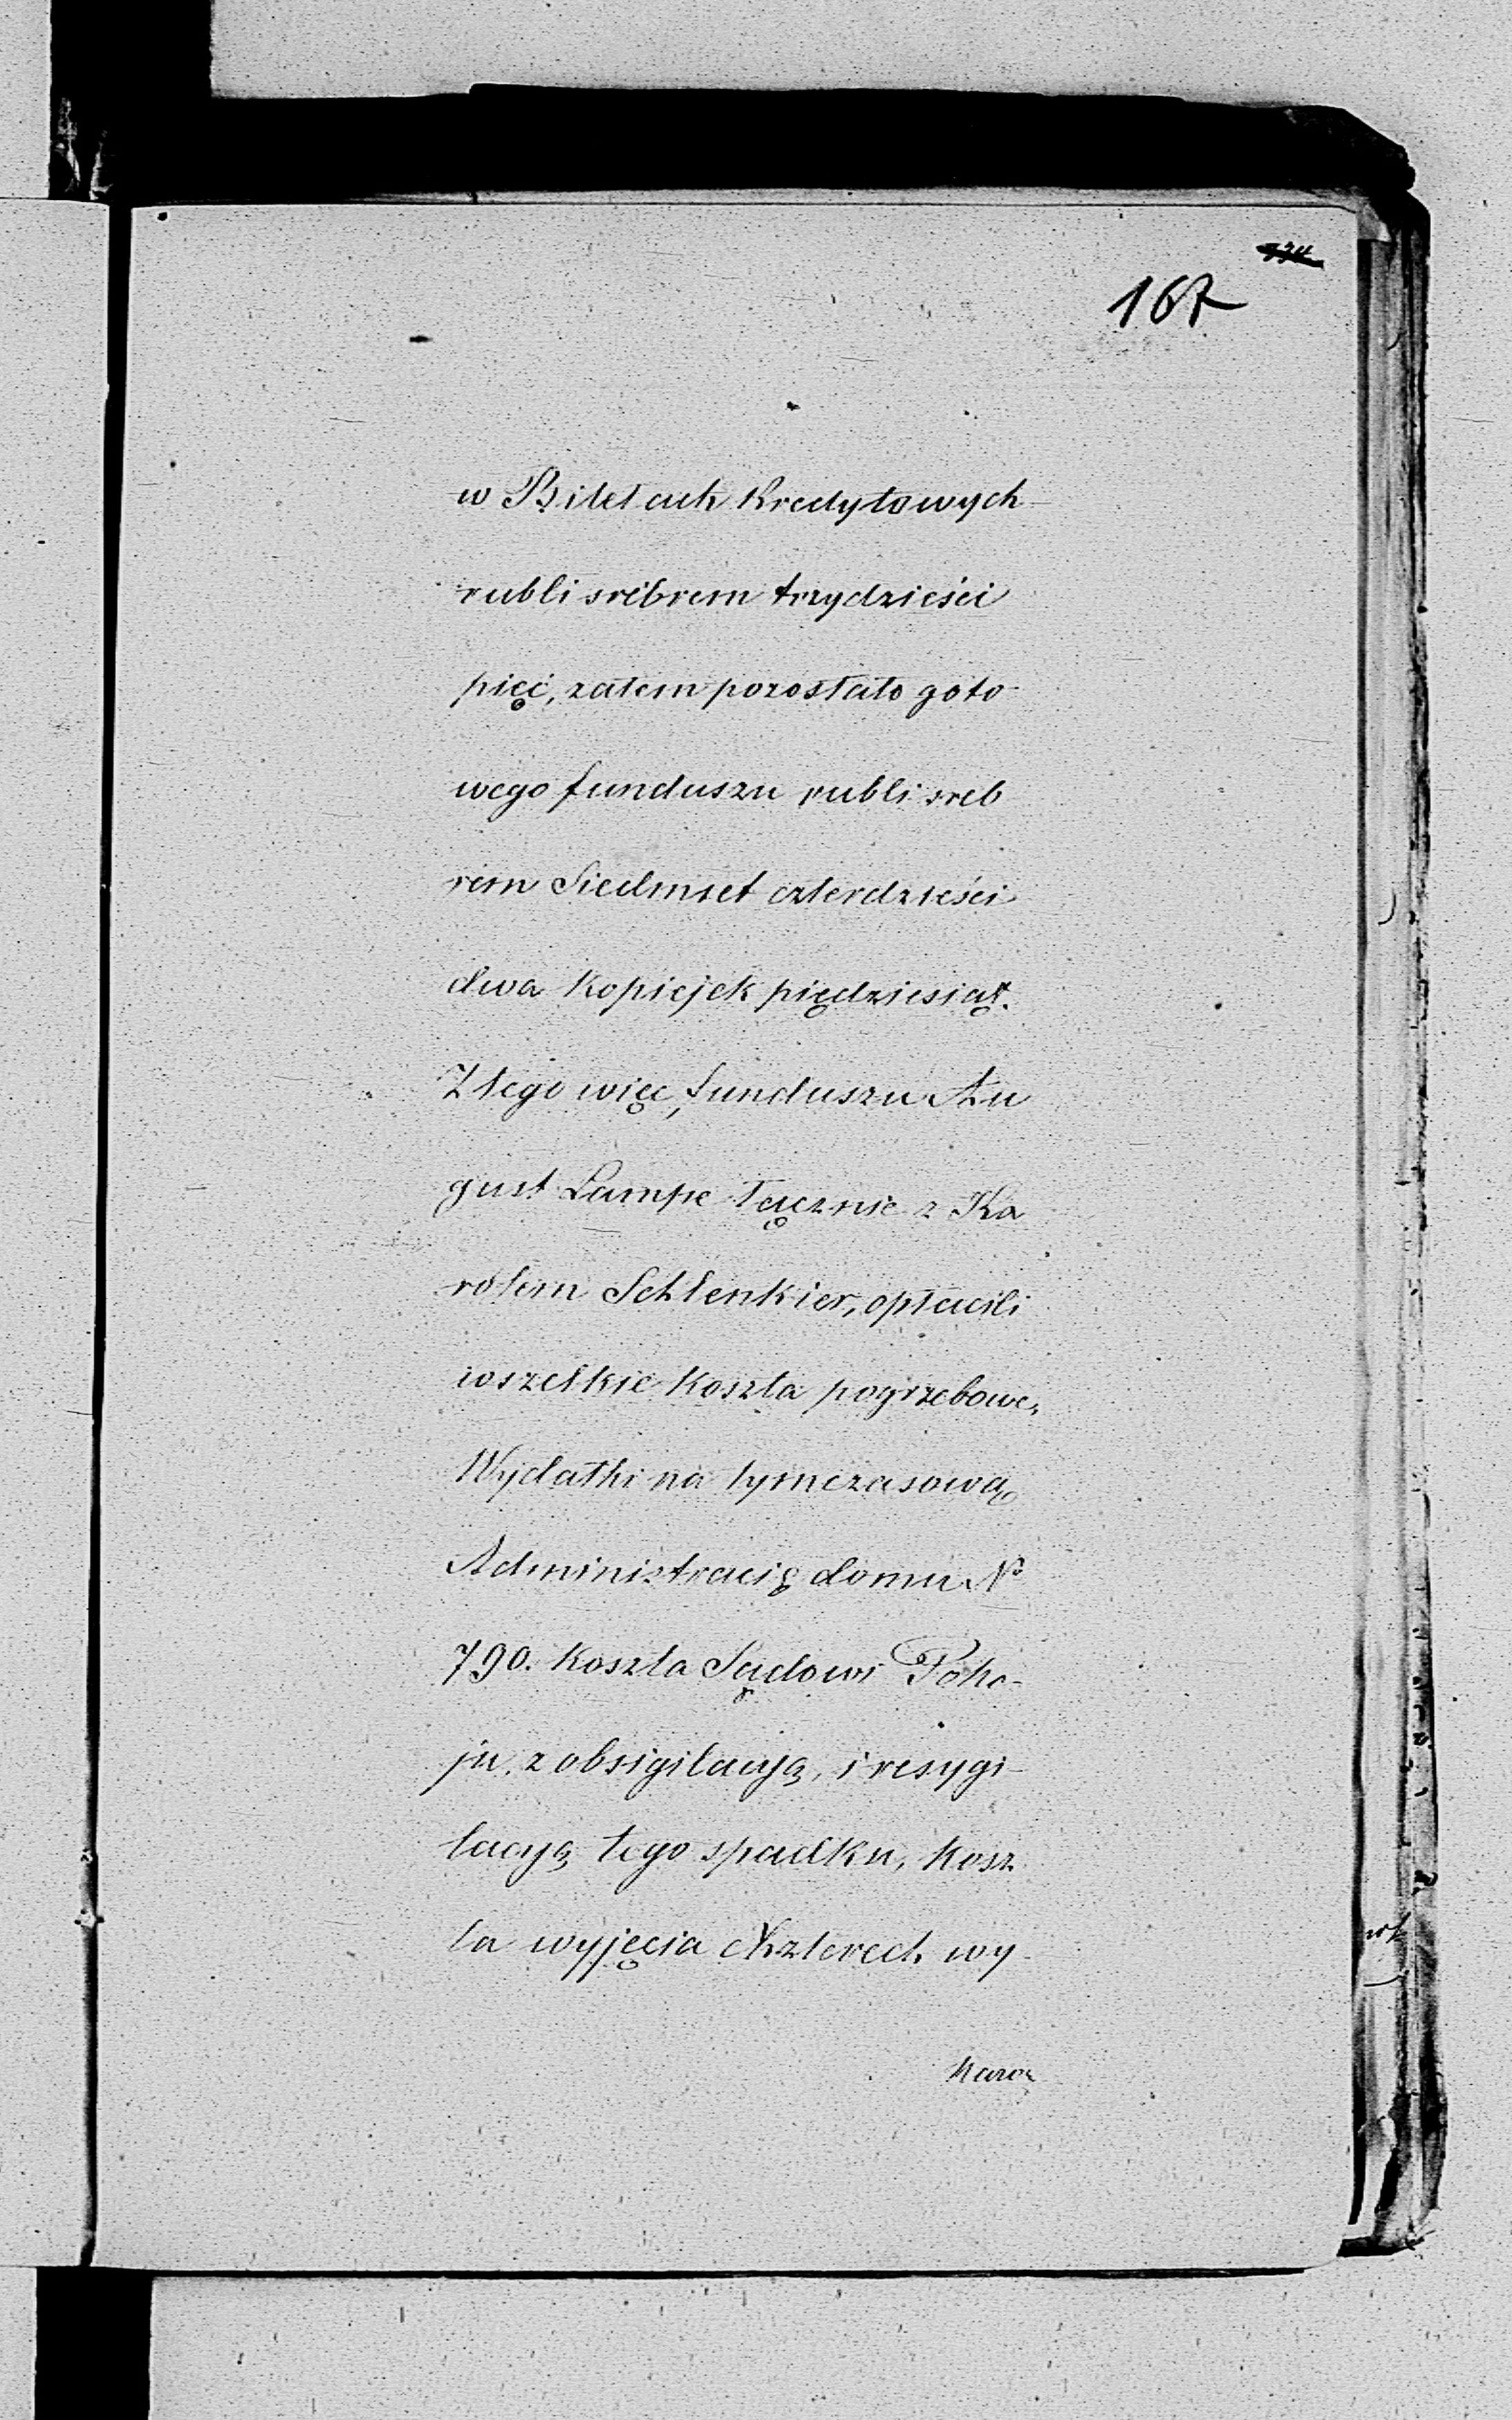 167
w Biletach Kredytowych
rubli srebrem trzydzieści
pięć, zatem pozostało goto-
wego funduszu rubli sreb
rem Siedmset czterdzieści
dwa Kopiejek pięćdziesiąt.
Z tego więc funduszu Au
gust Lampe łącznie z Ka
rolem Schlenkier, opłacili
wszelkie koszta pogrzebowe,
Wydatki na tymczasową
Administracię domu No
790. Koszta Sądowi Poko-
ju, z obsigilacyą, i resygi-
lacyą tego spadku, kosz
ta wyjęcia Czterech wy-